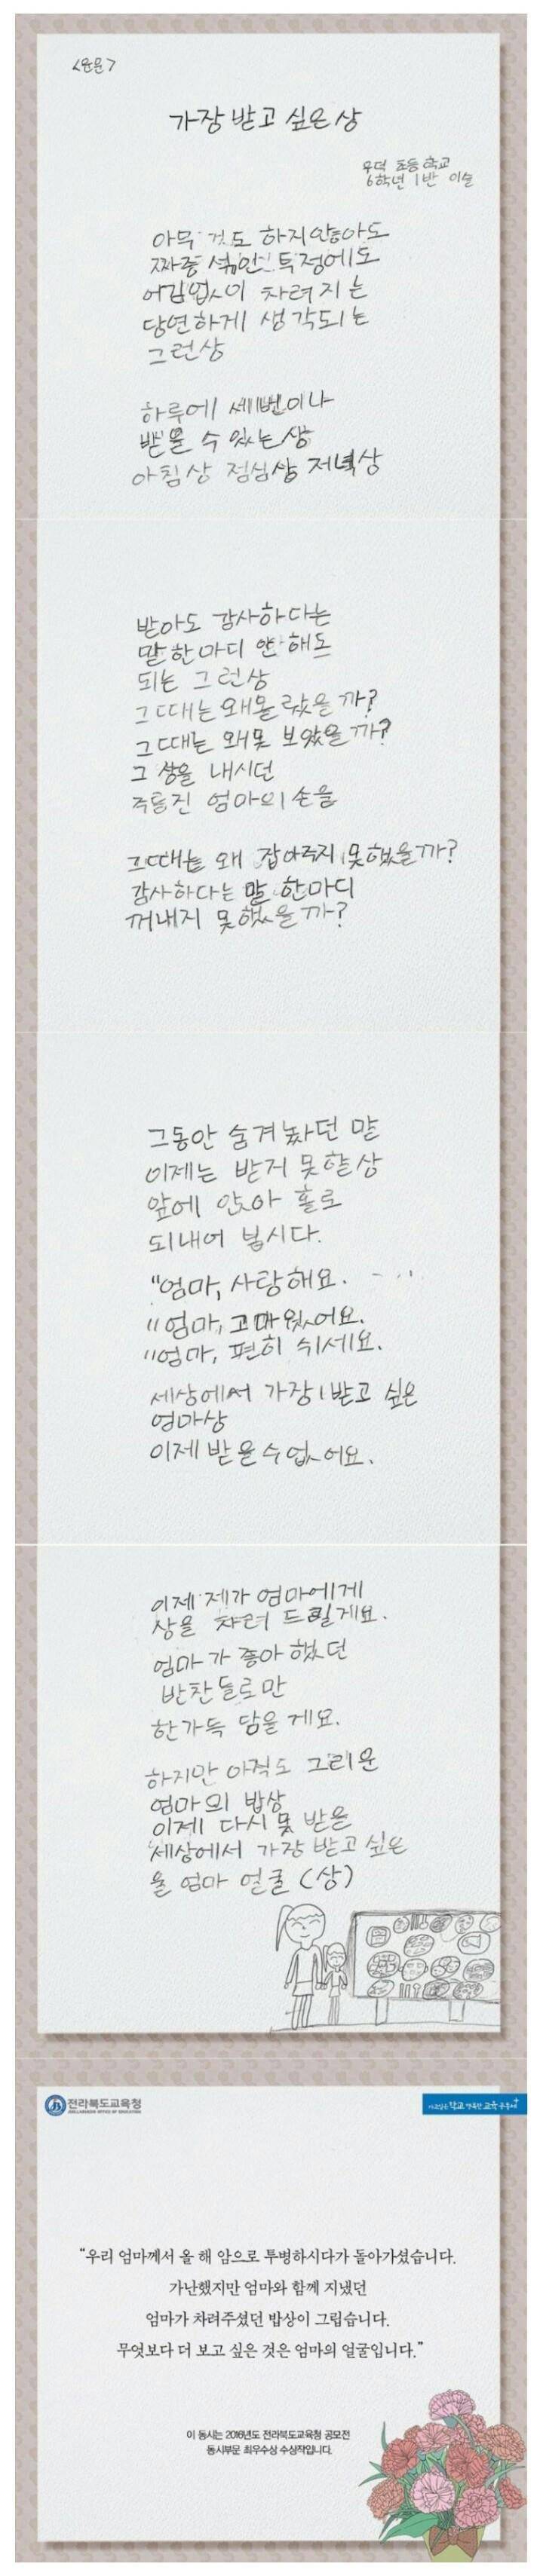 <운문>
가장 받고 싶은 상
우덕 초등학교
6학년 1반 이슬
아무 것도 하지 않아도
짜증 섞인 투정에도
어김없이 차려지는
당연하게 생각되는
그런상
하루에 세번이나
받을 수 있는 상
아침상 점심상 저녁상
받아도 감사하다는
말 한마디 안 해도
되는 그런상
그때는 왜 몰랐을까?
그때는 왜 못 보았을까?
그 상을 내시던
주름진 엄마의 손을
그때는 왜 잡아주지 못했을까?
감사하다는 말 한마디
꺼내지 못했을까?
그동안 숨겨놨던 말
이제는 받지 못할 상
앞에 앉아 홀로
되내어 봅시다.
"엄마, 사랑해요.
"엄마, 고마웠어요.
"엄마, 편히 쉬세요.
세상에서 가장 받고 싶은
엄마상
이제 받을 수 없어요.
이제 제가 엄마에게
상을 차려 드릴게요.
엄마가 좋아했던
반찬들로만
한가득 담을게요.
하지만 아직도 그리운
엄마의 밥상
이제 다시 못 받을
세상에서 가장 받고 싶은
울 엄마 얼굴 (상)
전라북도교육청
"우리 엄마께서 올 해 암으로 투병하시다가 돌아가셨습니다.
가난했지만 엄마와 함께 지냈던
엄마가 차려주셨던 밥상이 그립습니다.
무엇보다 더 보고 싶은 것은 엄마의 얼굴입니다."
이 동시는 2016년도 전라북도교육청 공모전
동시부문 최우수상 수상작입니다.